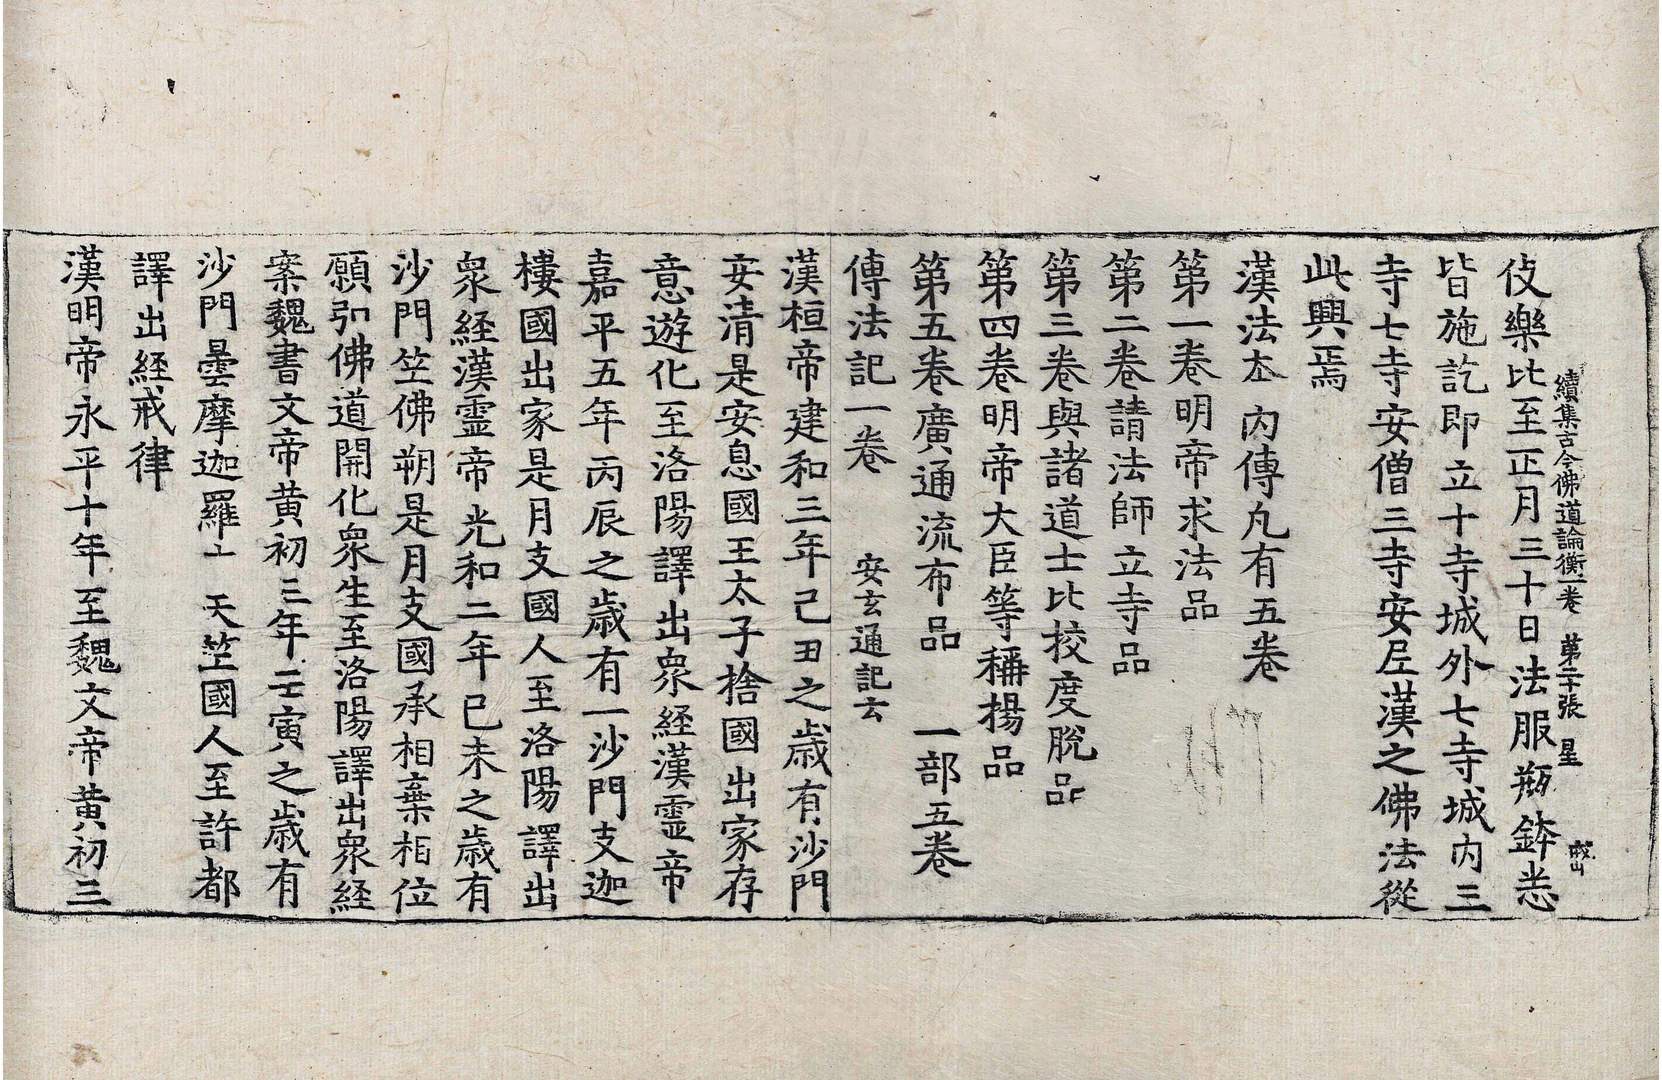 續集古今佛道論衡一卷 第二十張 星
伎樂比至正月三十日法服瓶鉢悉
皆施訖即立十寺城外七寺城内三
寺七寺安僧三寺安尼漢之佛法從
此興焉
漢法夲内傳凡有五卷
第一卷明帝求法品
第二卷請法師立寺品
第三卷與諸道士比校度脫品
第四卷明帝大臣等稱揚品
第五卷廣通流布品 一部五卷
傳法記一卷 安玄通記云
漢桓帝建和三年己丑之歲有沙門
安清是安息國王太子捨國出家存
意遊化至洛陽譯出衆経漢靈帝
嘉平五年丙辰之歲有一沙門支迦
樓國出家是月支國人至洛陽譯出
衆経漢靈帝光和二年巳未之歲有
沙門竺佛朔是月支國承相棄相位
願弘佛道開化衆生至洛陽譯出衆経
案魏書文帝黄初三年壬寅之歲有
沙門曇摩迦羅亠天竺國人至許都
譯出経戒律
漢明帝永平十年至魏文帝黄初三